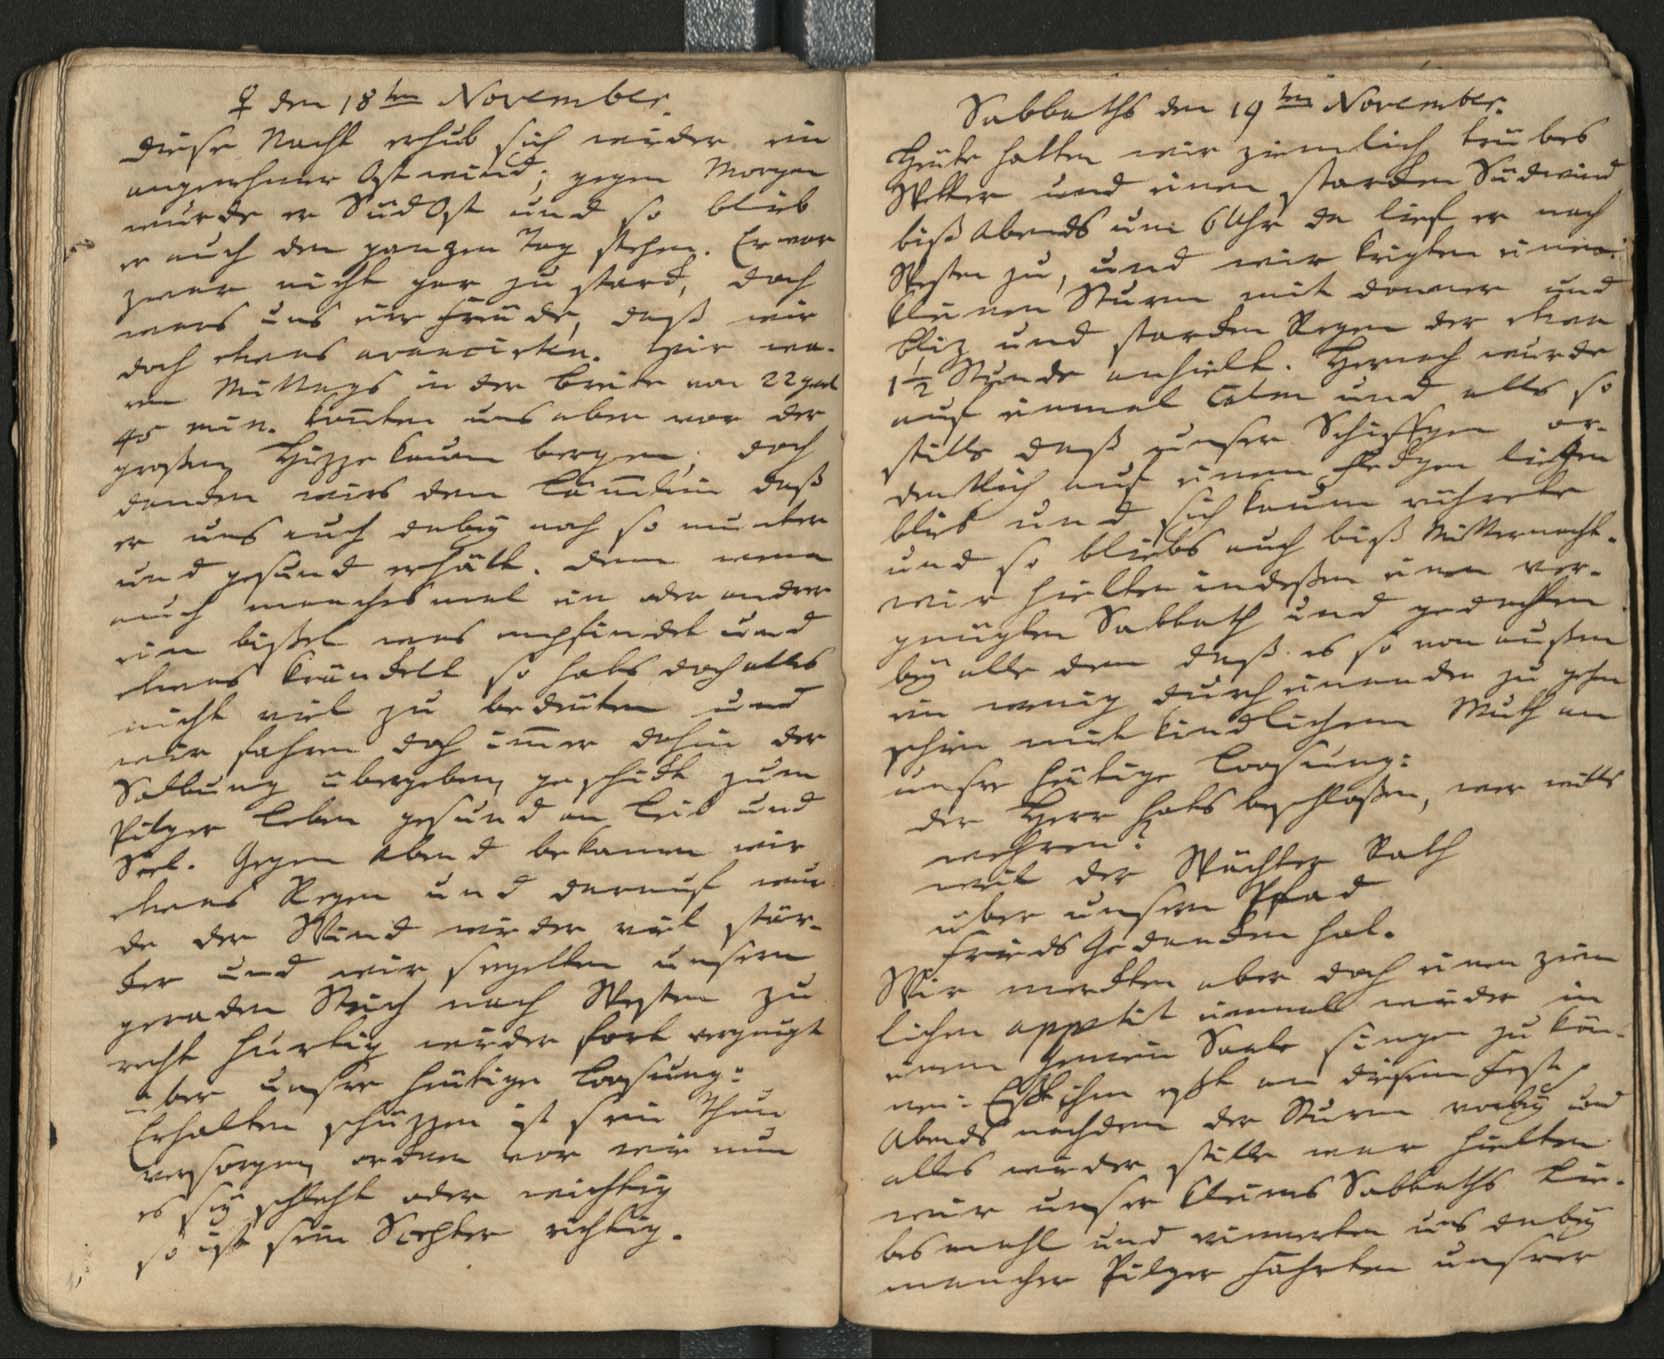 ♀ den 18ten November.
Diese Nacht erhub sich wieder ein
angenehmer Ostwind; gegen Morgen
wurde er SüdOst und so blieb
er auch den ganzen Tag stehen. Er war
zwar nicht gar zu starck, doch
wars uns eine Freude, daß wir
doch etwas avancirten. Wir wa-
ren Mittags in der Breite von 22 grad
45 min. konten uns aber vor der
großen Hizze kaum bergen, doch
dancken wirs dem Lämlein daß
er uns auch dabey noch so munter
und gesund erhält. Denn wenn
auch manchesmal ein oder andrer
ein bißel was empfindet und
etwas kränckelt so hats doch alles
nicht viel zu bedeuten und
wir fahren doch immer dahin der
Salbung übergeben, geschickt zum
Pilger Leben gesund an Leib und
Seel. Gegen Abend bekamen wir
etwas Regen und darauf wur-
de der Wind wieder viel stär-
cker und wir segelten unsern
geraden Strich nach Westen zu
recht hurtig wieder fort vergnügt
über unsre heutige Loosung:
Erhalten schüzzen ist sein Thun
versorgen, ordnen vor wie nun
es sey schlecht oder wichtig
so ist sein Scepter richtig.
Sabbaths den 19ten November.
Heute hatten wir ziemlich trübes
Wetter und einen starcken Südwind
biß Abends um 6 Uhr da lief er nach
Westen zu, und wir krigten einen
kleinen Sturm mit donner und
bliz und starcken Regen der etwa
1 1/2 Stunde anhielt. Hernach wurde
auf einmal Calm und alles so
stille daß unser Schiffgen or-
dentlich auf einem Fleckgen liegen
blieb und sich kaum rührete
und so bliebs auch biß Mitternacht.
Wir hielten indeßen einen ver-
gnügten Sabbath und gedachten
bey alle dem daß es so von außen
ein wenig durch einander zu gehn
schien mit kindlichem Muth an
unsre heutige Loosung:
der Herr hats beschloßen, wer wills
wehren?
weil der Wächter Rath
über unsern Pfad
Frieds Gedancken hat.
Wir merckten aber doch einen ziem
lichen appetit einmal wieder in
einem Gemein Saale singen zu kön-
nen: Eßt ihm eßt an diesem Fest,
Abends nachdem der Sturm vorbey und
alles wieder stille war hielten
wir unser kleines Sabbaths Lie-
besmahl und erinnerten uns dabey
mancher Pilger Fahrten unsrer